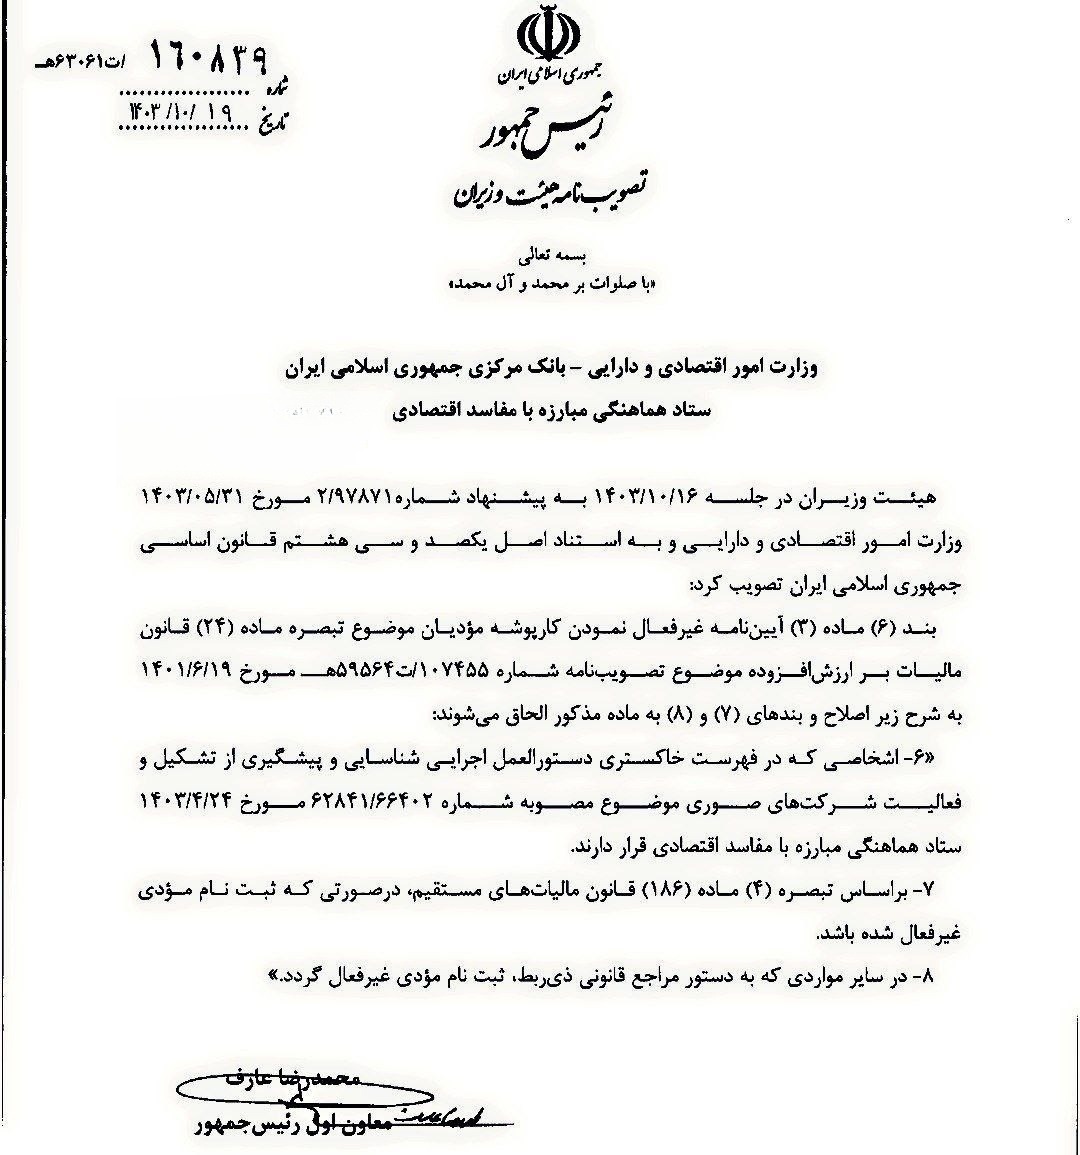 ۱۶۰۸۳۹ /ت۶۳۰۶۱هـ
شماره
تاریخ ۱۴۰۳/۱۰/۱۹
جمهوری اسلامی ایران
رئیس جمهور
تصویب‌نامه هیئت وزیران
بسمه تعالی
«با صلوات بر محمد و آل محمد»
وزارت امور اقتصادی و دارایی – بانک مرکزی جمهوری اسلامی ایران
ستاد هماهنگی مبارزه با مفاسد اقتصادی
هیئت وزیران در جلسه ۱۴۰۳/۱۰/۱۶ به پیشنهاد شماره ۲/۹۷۸۷۱ مورخ ۱۴۰۳/۰۵/۳۱
وزارت امور اقتصادی و دارایی و به استناد اصل یکصد و سی هشتم قانون اساسی
جمهوری اسلامی ایران تصویب کرد:
بند (۶) ماده (۳) آیین‌نامه غیرفعال نمودن کارپوشه مؤدیان موضوع تبصره ماده (۲۴) قانون
مالیات بر ارزش‌افزوده موضوع تصویب‌نامه شماره ۱۰۷۴۵۵/ت۵۹۵۶۴هـ مورخ ۱۴۰۱/۶/۱۹
به شرح زیر اصلاح و بندهای (۷) و (۸) به ماده مذکور الحاق می‌شوند:
«۶- اشخاصی که در فهرست خاکستری دستورالعمل اجرایی شناسایی و پیشگیری از تشکیل و
فعالیت شرکت‌های صوری موضوع مصوبه شماره ۶۲۸۴۱/۶۶۴۰۲ مورخ ۱۴۰۳/۴/۲۴
ستاد هماهنگی مبارزه با مفاسد اقتصادی قرار دارند.
۷- براساس تبصره (۴) ماده (۱۸۶) قانون مالیات‌های مستقیم، درصورتی که ثبت نام مؤدی
غیرفعال شده باشد.
۸- در سایر مواردی که به دستور مراجع قانونی ذی‌ربط، ثبت نام مؤدی غیرفعال گردد.»
محمدرضا عارف
معاون اول رئیس‌جمهور